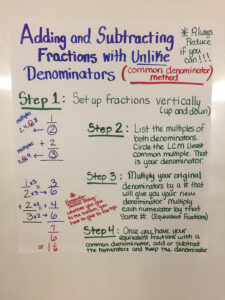 Adding and Subtracting
Fractions with Unlike
Denominators (common denominator)
method
* Always
Reduce
if you
can!!!
Step 1: Set up fractions vertically
(up and down)
multiples
1
2
2
3
Step 2: List the multiples of
both denominators.
Circle the LCM (least
common multiple. That
is your denominator.
Step 3: Multiply your original
denominators by a # that
will give you your new
denominator. Multiply
each numerator by that
same #. (Equivalent Fractions)
1 x3 = 3
2 x3 → 6
+ 2 x2 = 4
3 x2 → 6
7
6
or 1 1/6
* Remember
Whatever you
do to the bottom, you
have to do to the top.
Step 4: Once you have your
equivalent fractions with a
common denominator, add or subtract
the numerators and keep the denominator.